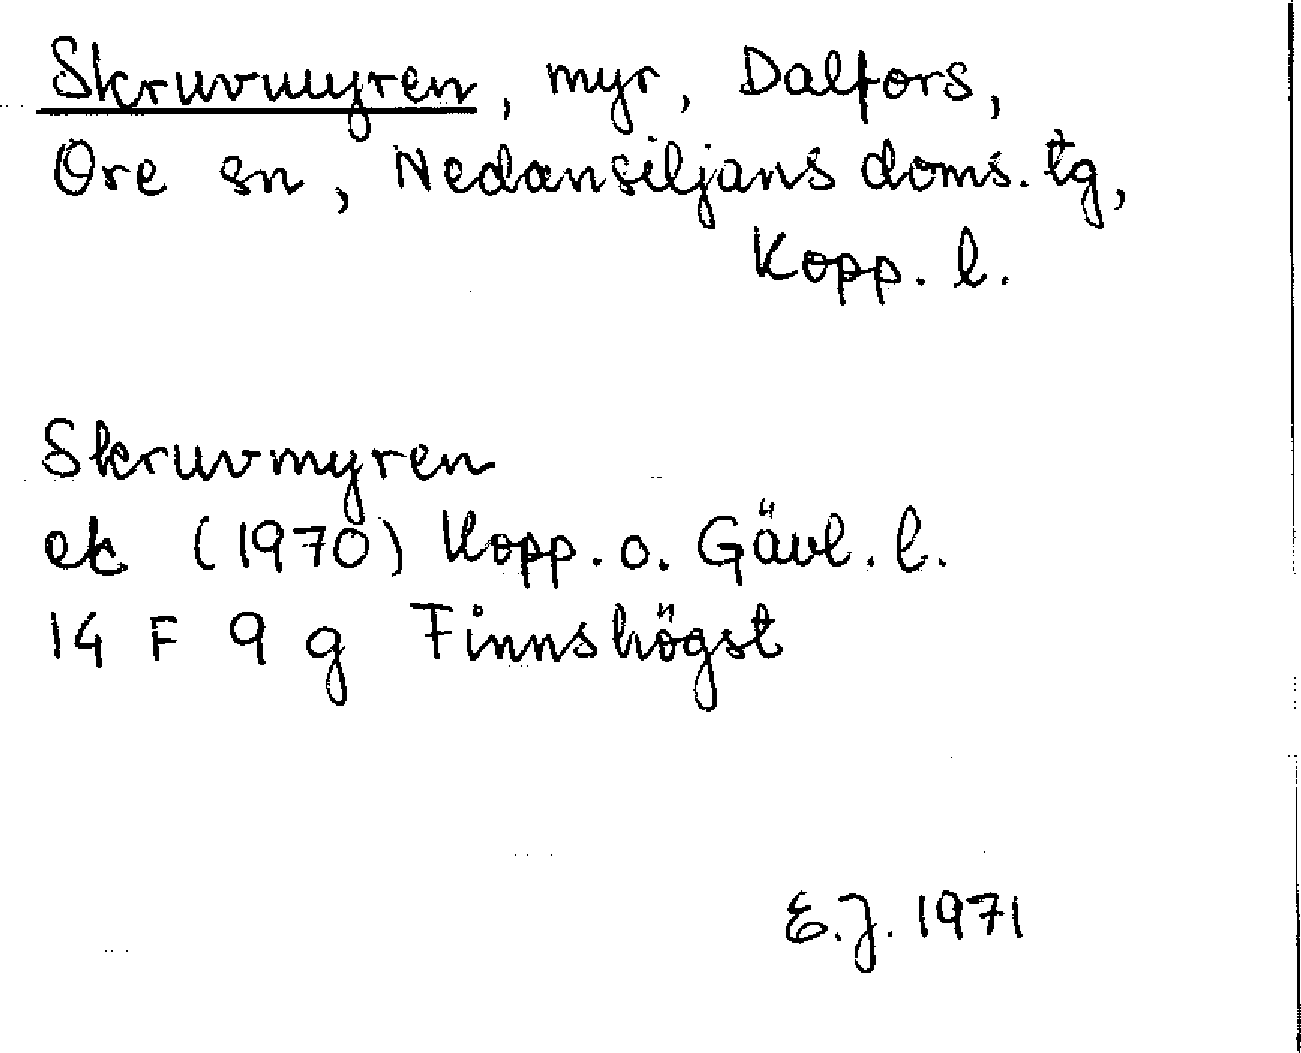 Skruvmyren, myr, Dalfors,
Ore sn, Nedansiljans doms. tg,
Kopp. l.
Skruvmyren
ek (1970) Kopp. o. Gävl. l.
14 F 9 g Finnshögst
E.J. 1971